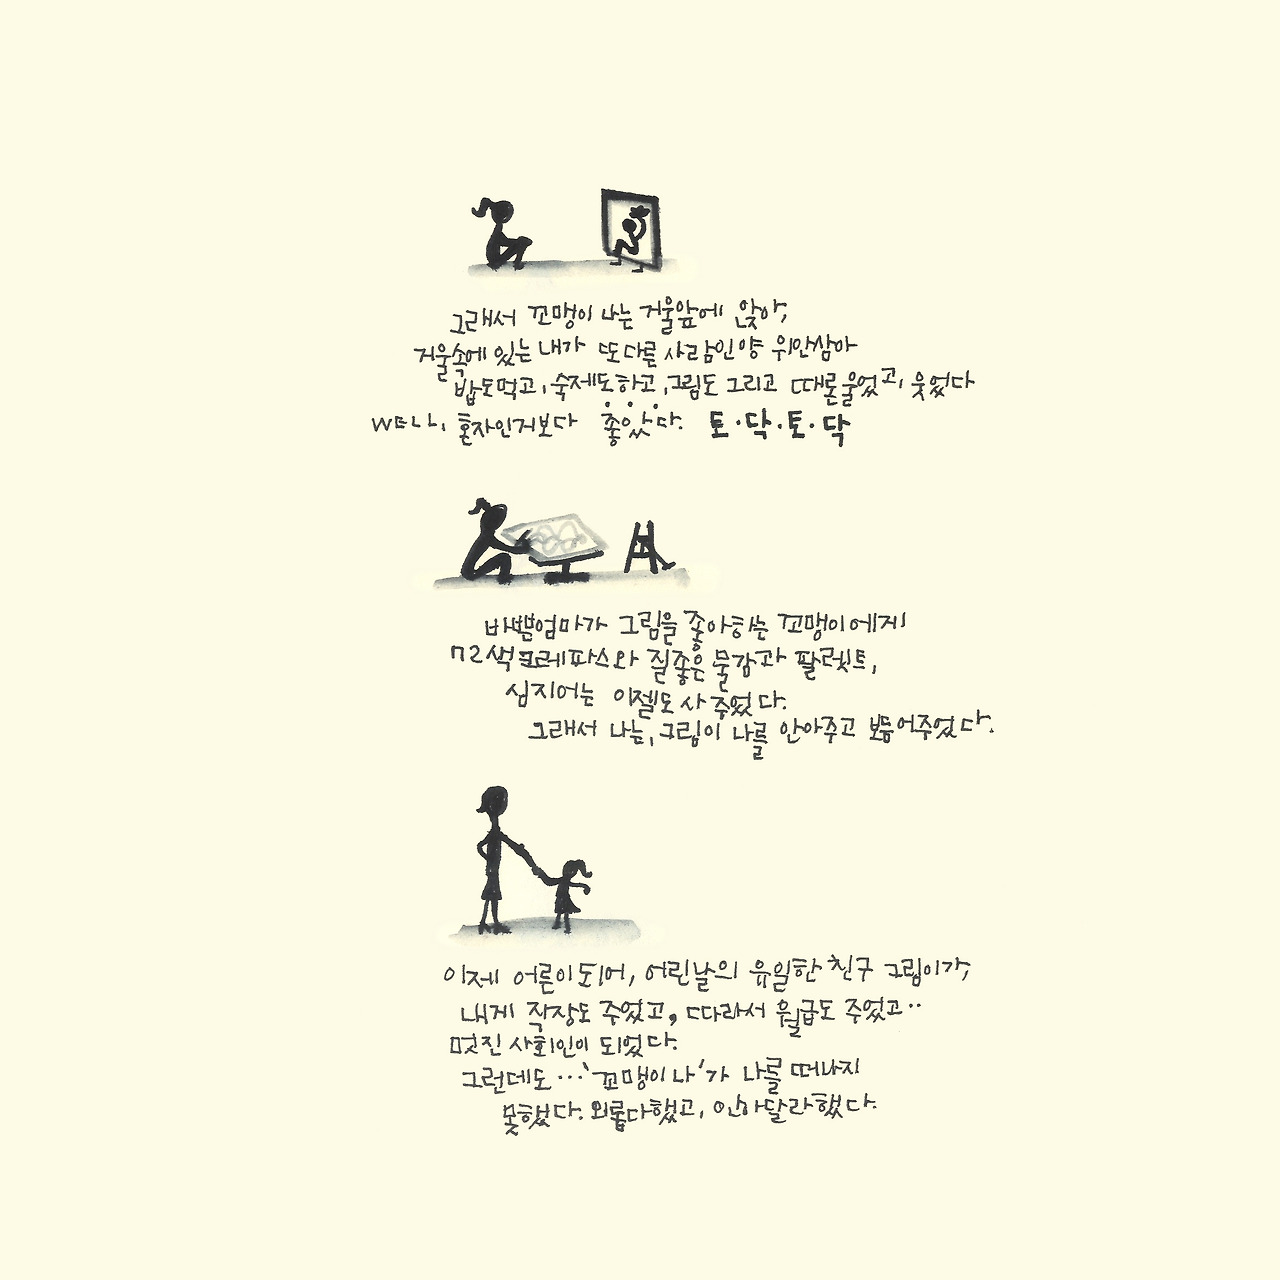 그래서 꼬맹이 나는 거울앞에 앉아,
거울속에 있는 내가 또다른 사람인양 위안삼아
밥도먹고, 숙제도하고, 그림도 그리고 때론울었고, 웃었다
혼자인거보다 좋았다. 토·닥·토·닥
바쁜엄마가 그림을 좋아하는 꼬맹이에게
72색크레파스와 질좋은 물감과 팔렛트,
심지어는 이젤도 사 주었다.
그래서 나는, 그림이 나를 안아주고 보듬어주었다.
이제 어른이되어, 어린날의 유일한 친구 그림이가,
내게 직장도 주었고, 따라서 월급도 주었고··
멋진 사회인이 되었다.
그런데도 ···'꼬맹이 나'가 나를 떠나지
못했다. 외롭다했고, 안아달라했다.